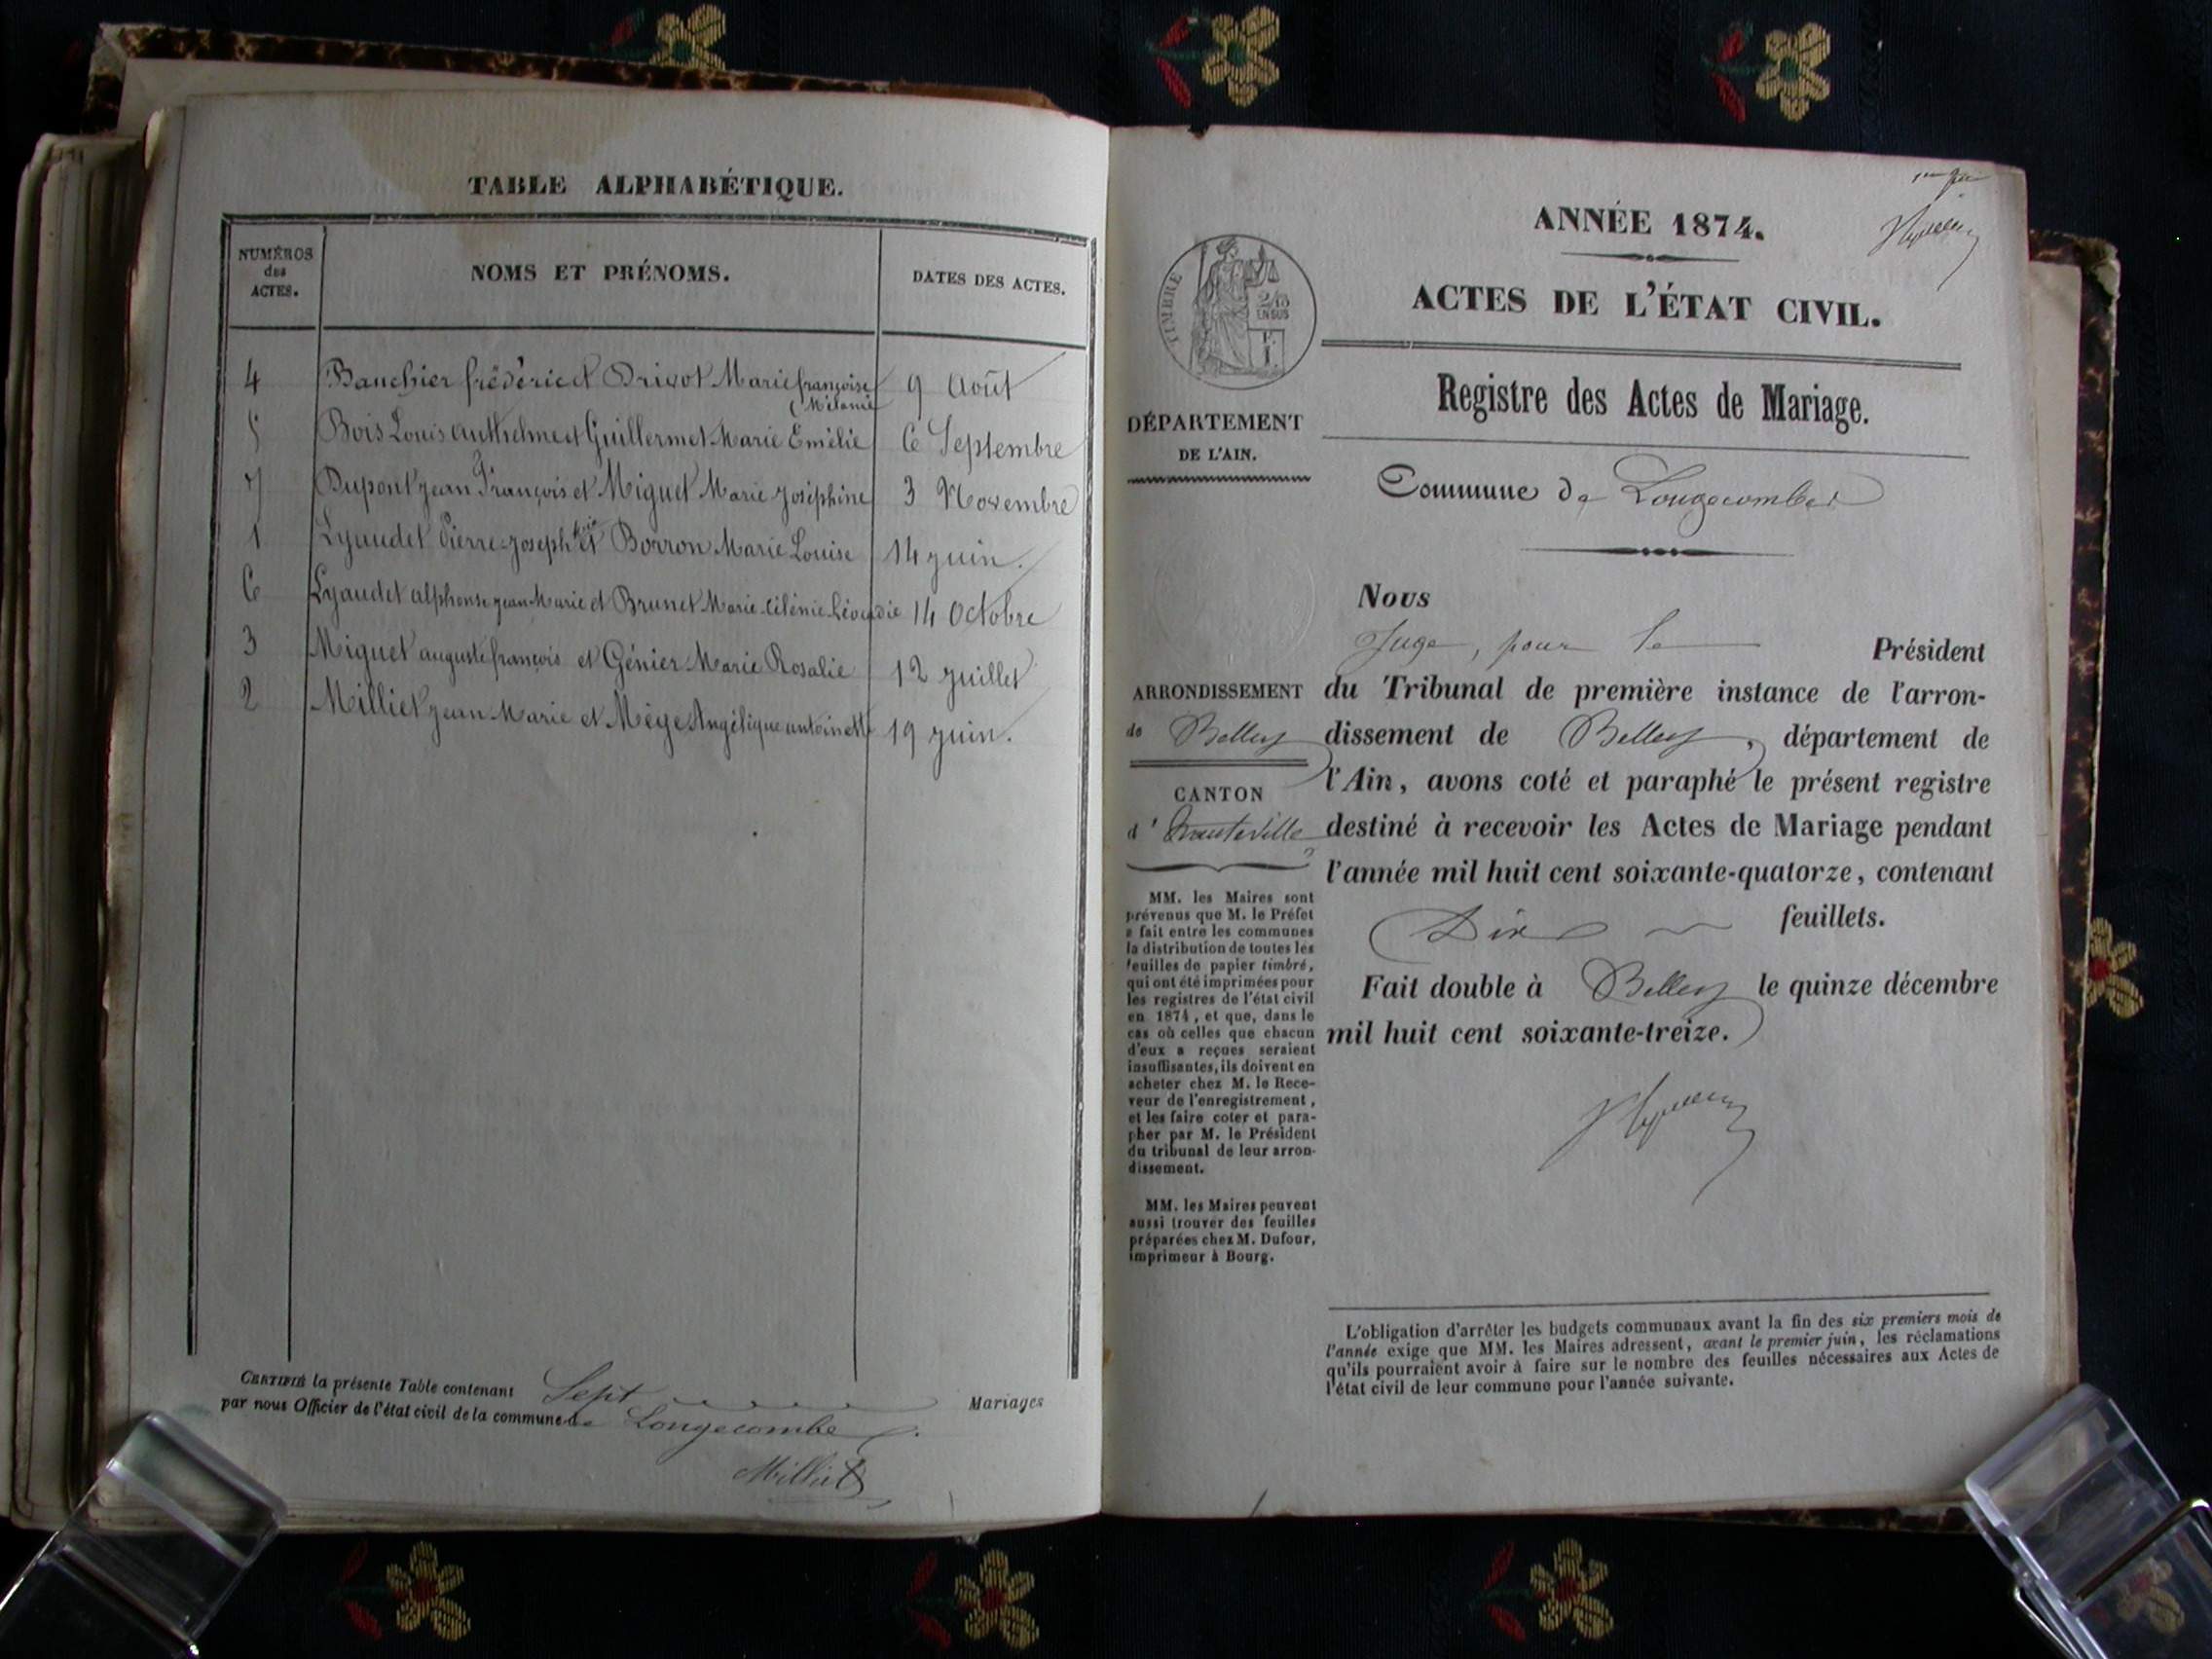 TABLE ALPHABÉTIQUE.
NUMÉROS
des
ACTES.
NOMS ET PRÉNOMS.
DATES DES ACTES.
4 Bauchier frédéric et Drivot Marie françoise 9 Août
(Mélanie
5 Bois Louis Anthelme et Guillermet Marie Emélie 6 Septembre
7 Dupont jean François et Miguet Marie joséphine 3 Novembre
1 Lyaudet Pierre-joseph et Borron Marie Louise 14 juin.
6 Lyaudet alphonse jean Marie et Brunet Marie Léocadie 14 Octobre
3 Miguet auguste françois et Génier Marie Rosalie 12 juillet
2 Milliet jean Marie et Mège Angélique antoinette 19 juin.
CERTIFIÉ la présente Table contenant Sept Mariages
par nous Officier de l'état civil de la commune de Longecombe
Milliet
ANNÉE 1874.
ACTES DE L'ÉTAT CIVIL.
TIMBRE
2/10
EN SUS
Registre des Actes de Mariage.
DÉPARTEMENT
DE L'AIN.
Commune de Longecombe
Nous
Juge, pour le Président
ARRONDISSEMENT
de Belley
CANTON
d'hauteville
du Tribunal de première instance de l'arron-
dissement de Belley, département de
l'Ain, avons coté et paraphé le présent registre
destiné à recevoir les Actes de Mariage pendant
l'année mil huit cent soixante-quatorze, contenant
Dix feuillets.
Fait double à Belley le quinze décembre
mil huit cent soixante-treize.
MM. les Maires sont
prévenus que M. le Préfet
a fait entre les communes
la distribution de toutes les
feuilles de papier timbré,
qui ont été imprimées pour
les registres de l'état civil
en 1874, et que, dans le
cas où celles que chacun
d'eux a reçues seraient
insuffisantes, ils doivent en
acheter chez M. le Rece-
veur de l'enregistrement,
et les faire coter et para-
pher par M. le Président
du tribunal de leur arron-
dissement.
MM. les Maires peuvent
aussi trouver des feuilles
préparées chez M. Dufour,
imprimeur à Bourg.
L'obligation d'arrêter les budgets communaux avant la fin des six premiers mois de
l'année exige que MM. les Maires adressent, avant le premier juin, les réclamations
qu'ils pourraient avoir à faire sur le nombre des feuilles nécessaires aux Actes de
l'état civil de leur commune pour l'année suivante.